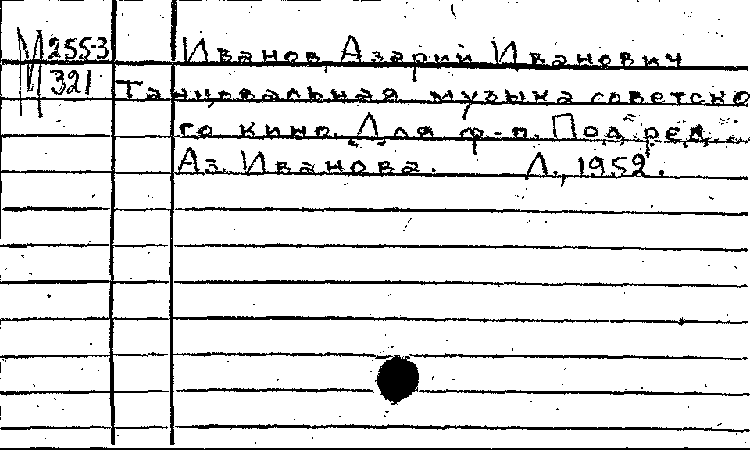 М 255-3
321
Иванов, Азарий Иванович
Танцовальная музыка советско
го кино. Для ф-п. Под ред.
Аз. Иванова. Л., 1952.